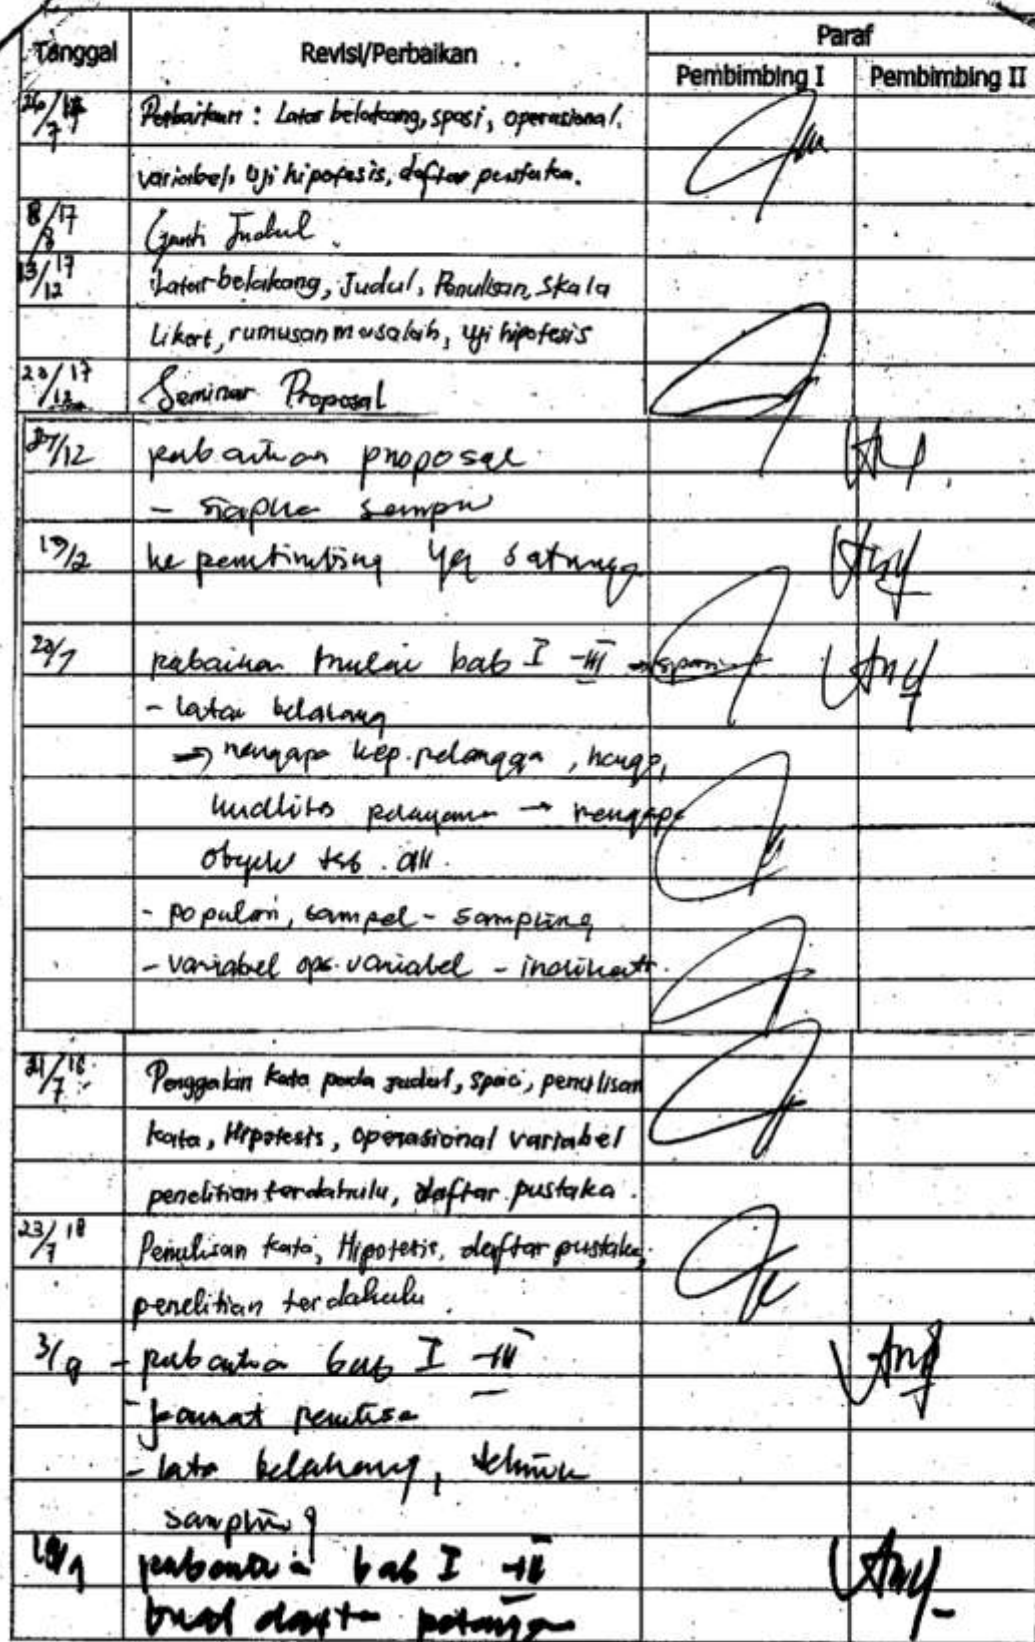 Tanggal Revisi/Perbaikan Paraf
Pembimbing I Pembimbing II
26/7 17 Perbaikan : Latar belakang, spasi, operasional.
variabel, Uji hipotesis, daftar pustaka.
8/8 17 Ganti Judul.
13/12 17 Latar belakang, Judul, Penulisan, Skala
Likert, rumusan masalah, uji hipotesis
20/12 17 Seminar Proposal
27/12 perbaikan proposal
- siapkan sempro
19/2 ke pembimbing yg satunya
perbaikan mulai bab I - III → spasi
- latar belakang
→ mengapa kep. pelanggan, harga,
kualitas pelayanan → mengapa
obyek tsb. dll.
- populasi, sampel - sampling
- variabel ops. variabel - indikator.
21/7 18 Penggalan kata pada judul, spasi, penulisan
kata, Hipotesis, operasional variabel
penelitian terdahulu, daftar pustaka.
23/7 18 Penulisan kata, Hipotesis, daftar pustaka,
penelitian terdahulu.
3/9 - perbaikan bab I - III
- format penulisan
- latar belakang, teknik
sampling
perbaikan bab I - III
buat daftar